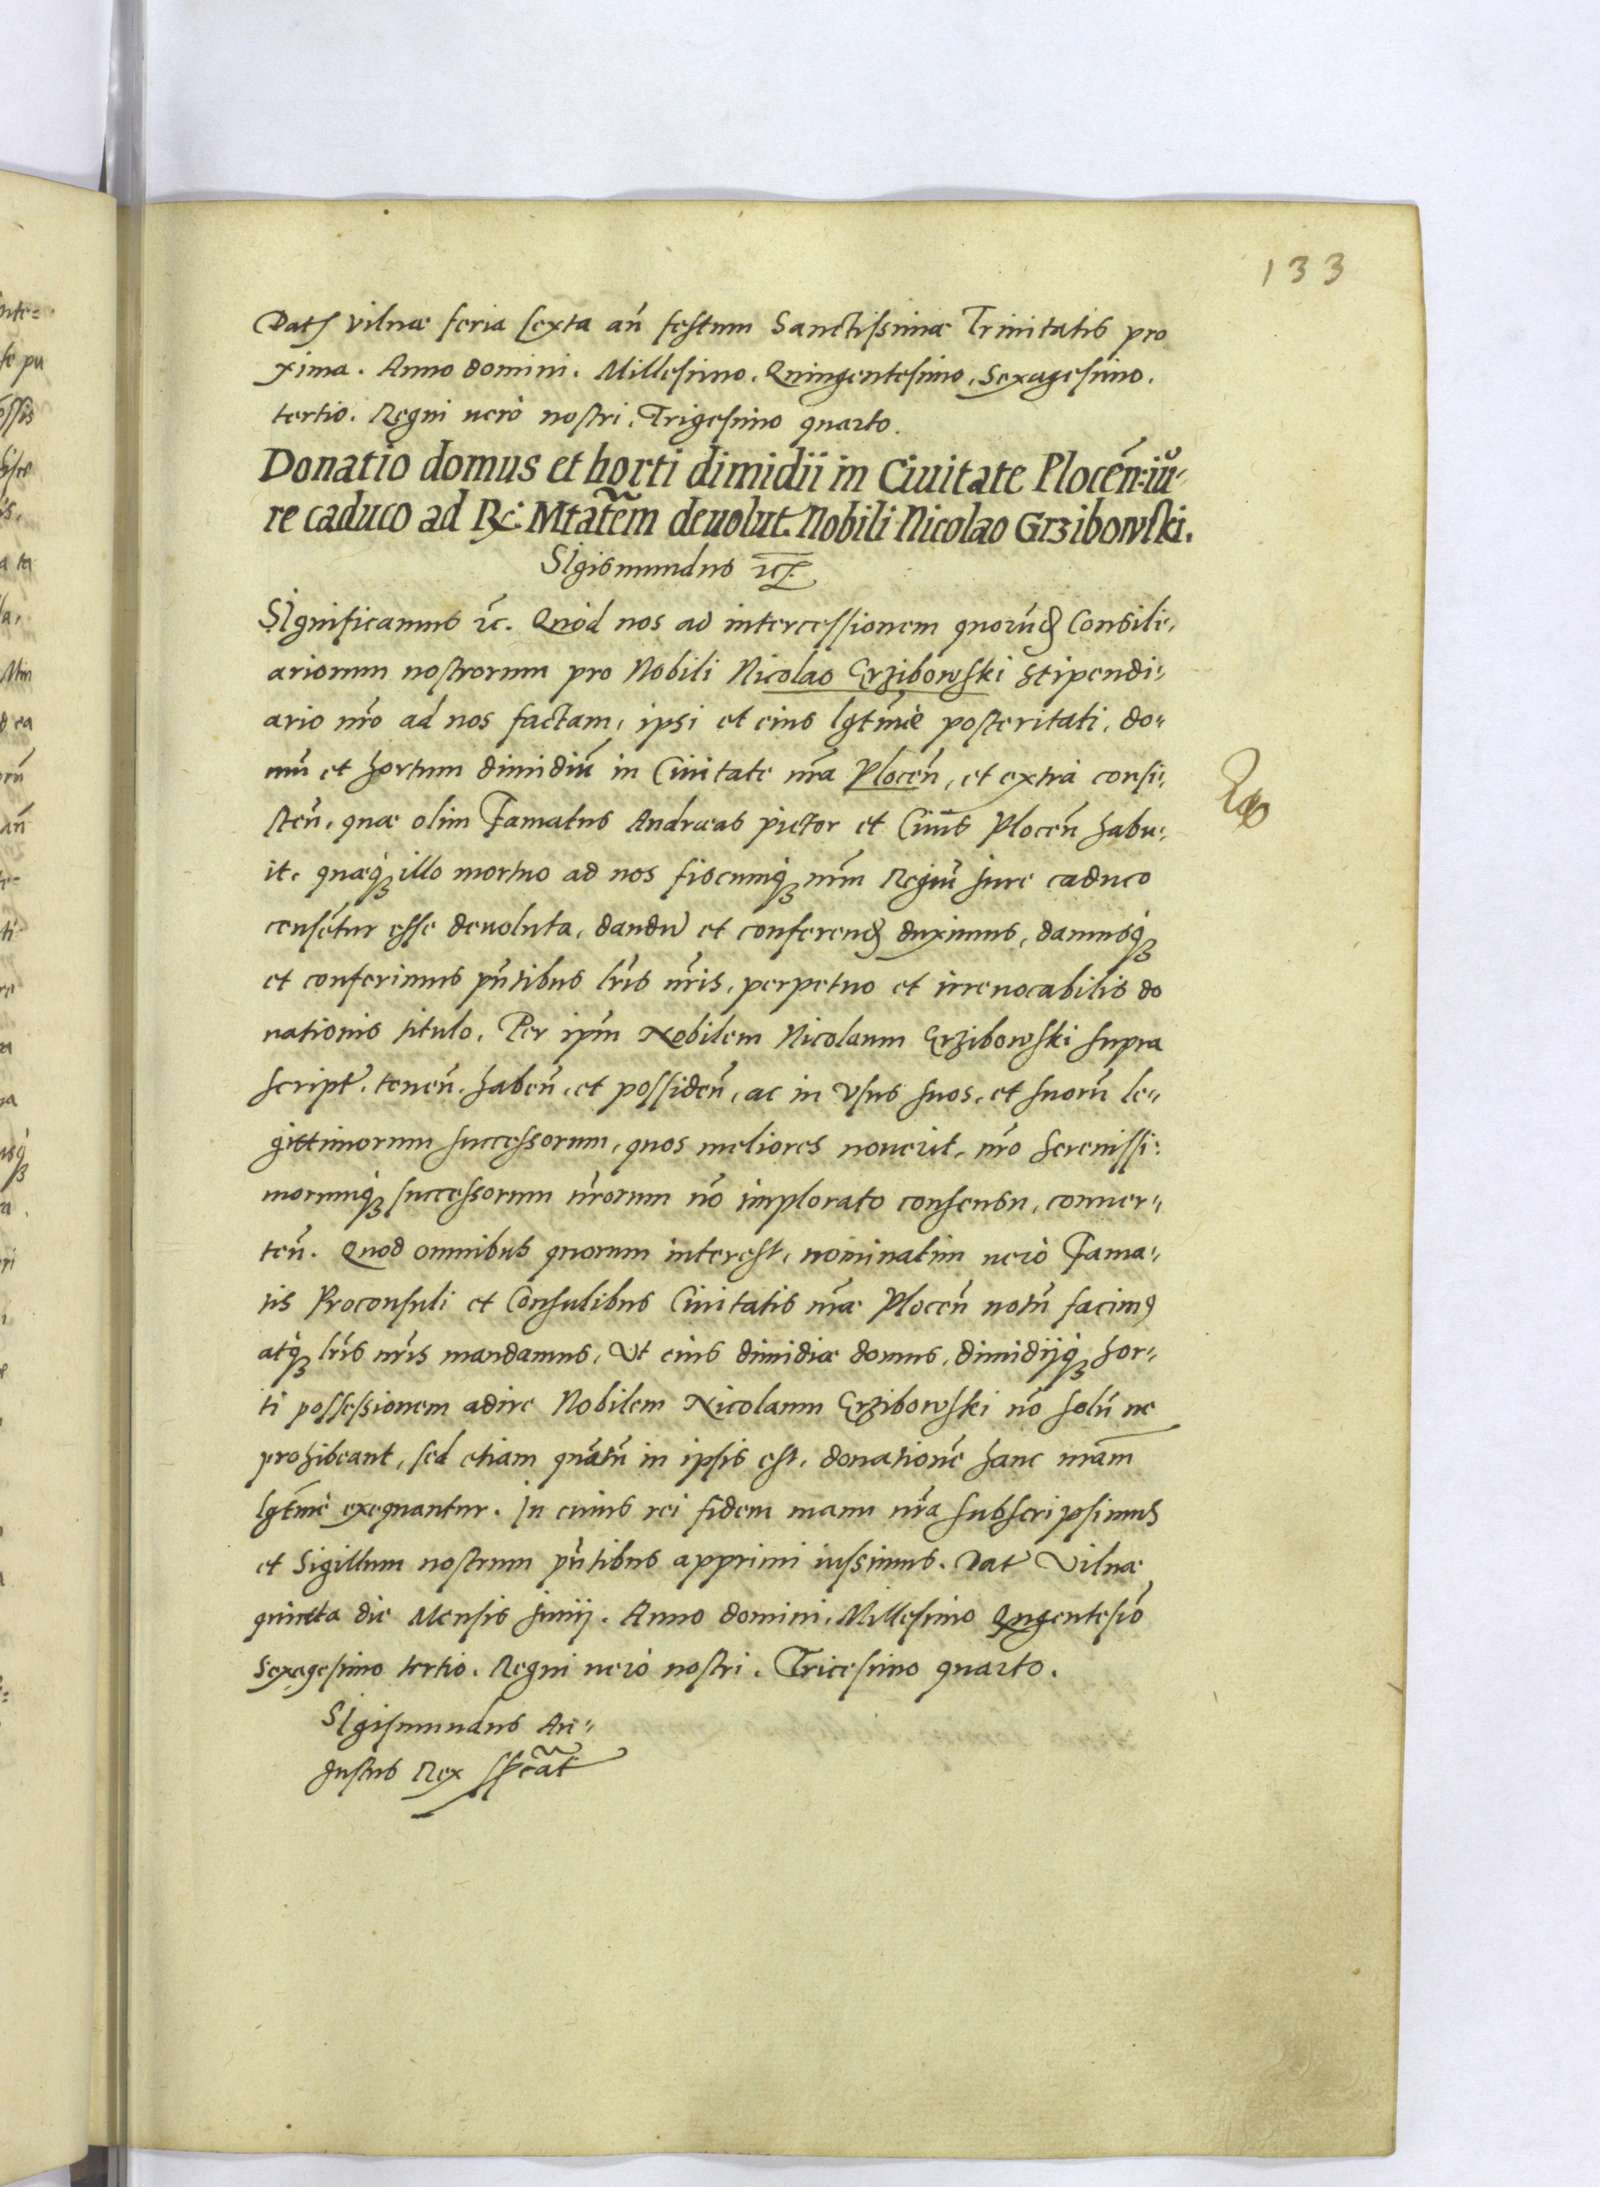 133
Dat vilnæ feria sexta añ festum Sanctissimæ Trinitatis pro
xima. Anno domini. Millesimo. Quingentesimo. Sexagesimo.
tertio. Regni uerò nostri. Trigesimo quarto.
Donatio domus et horti dimidii in Ciuitate Plocen̄: iu-
re caduco ad R: Mtãtem deuolut. Nobili Nicolao Grzibowski.
SIgismundus ꝛc̄.
SIgnificamus ꝛc̄. Quòd nos ad intercessionem quorūd Consili-
ariorum nostrorum pro Nobili Nicolao Grzibowski Stipendi-
ario nr̄o ad nos factam, ipsi et eius lgt̄mè posteritati, do-
mū et hortum dimidiū in Ciuitate nr̄a Plocen̄, et extrà consi-
sten̄, quæ olim Famatus Andræas pictor et Ciuis Plocen̄ habu-
it, quæq́ꝫ illo mortuo ad nos fiscumq́ꝫ nr̄m Regiū Jure caduco
censētur esse deuoluta, dandū et conferend duximus, damusq́ꝫ
et conferimus pn̄tibus lr̄is nr̄is, perpetuo et irreuocabilis do
nationis titulo. Per ip̄m Nobilem Nicolaum Grzibowski supra
script. tenen̄. haben̄. et possiden̄, ac in Vsus suos, et suorū le-
gittimorum successorum, quos meliores nouerit, nr̄o Serenissi-
morumq́ꝫ successorum nr̄orum nō implorato consensu, conuer-
ten̄. Quod omnibus quorum interest, nominatim uerò Fama-
tis Proconsuli et Consulibus Ciuitatis nr̄æ Plocen̄ notū facimꝰ
atq́ꝫ lr̄is nr̄is mandamus, Vt eius dimidiæ domus, dimidijq́ꝫ hor-
ti possessionem adire Nobilem Nicolaum Grzibowski nō solū ne
prohibeant, sed etiam quātū in ipsis est, donationē hanc nr̄am
lgt̄mè exequantur. In cuius rei fidem manu nr̄a subscripsimus
et Sigillum nostrum pn̄tibus apprimi iussimus. Dat Vilnæ
quincta die Mensis Junij. Anno domini. Millesimo Qngentesiō
Sexagesimo tertio. Regni uerò nostri. Tricesimo quarto.
SIgismundus Au-
gustus Rex